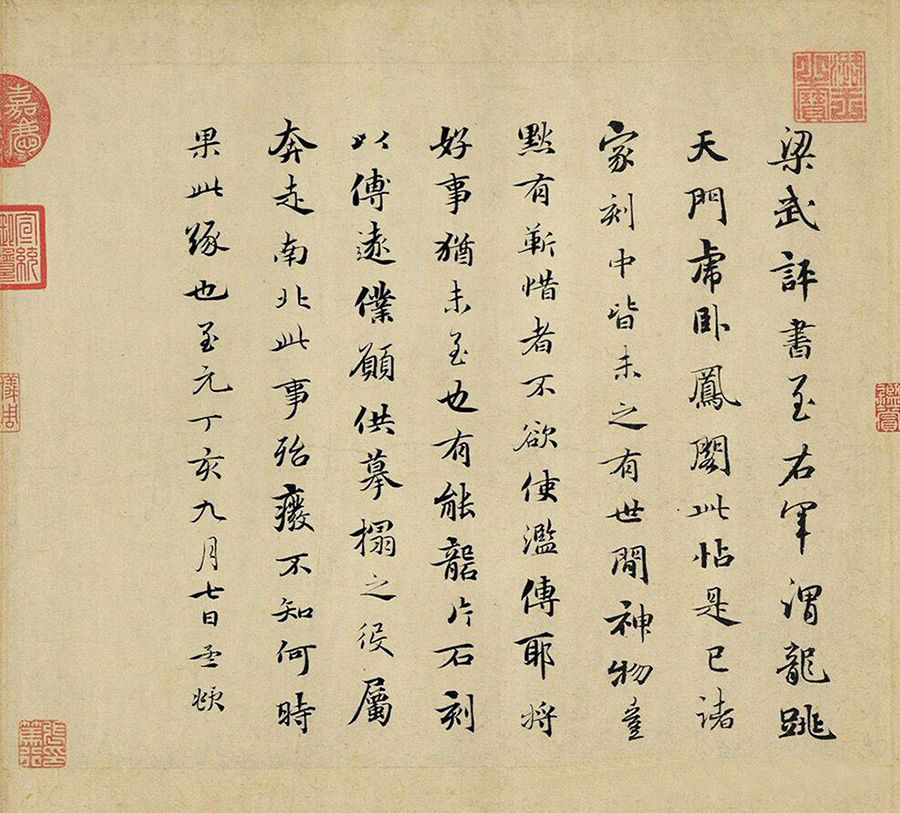 梁武評書至右軍謂龍跳
天門虎卧鳳閣此帖是已諸
家刻中皆未之有世間神物豈
默有靳惜者不欲使濫傳耶將
好事猶未至也有能龍片石刻
以傳遠僕願供摹搨之役屬
奔走南北此事殆癈不知何時
果此緣也至元丁亥九月七日孟頫
嘉慶
宣統
鑑賞
儀周